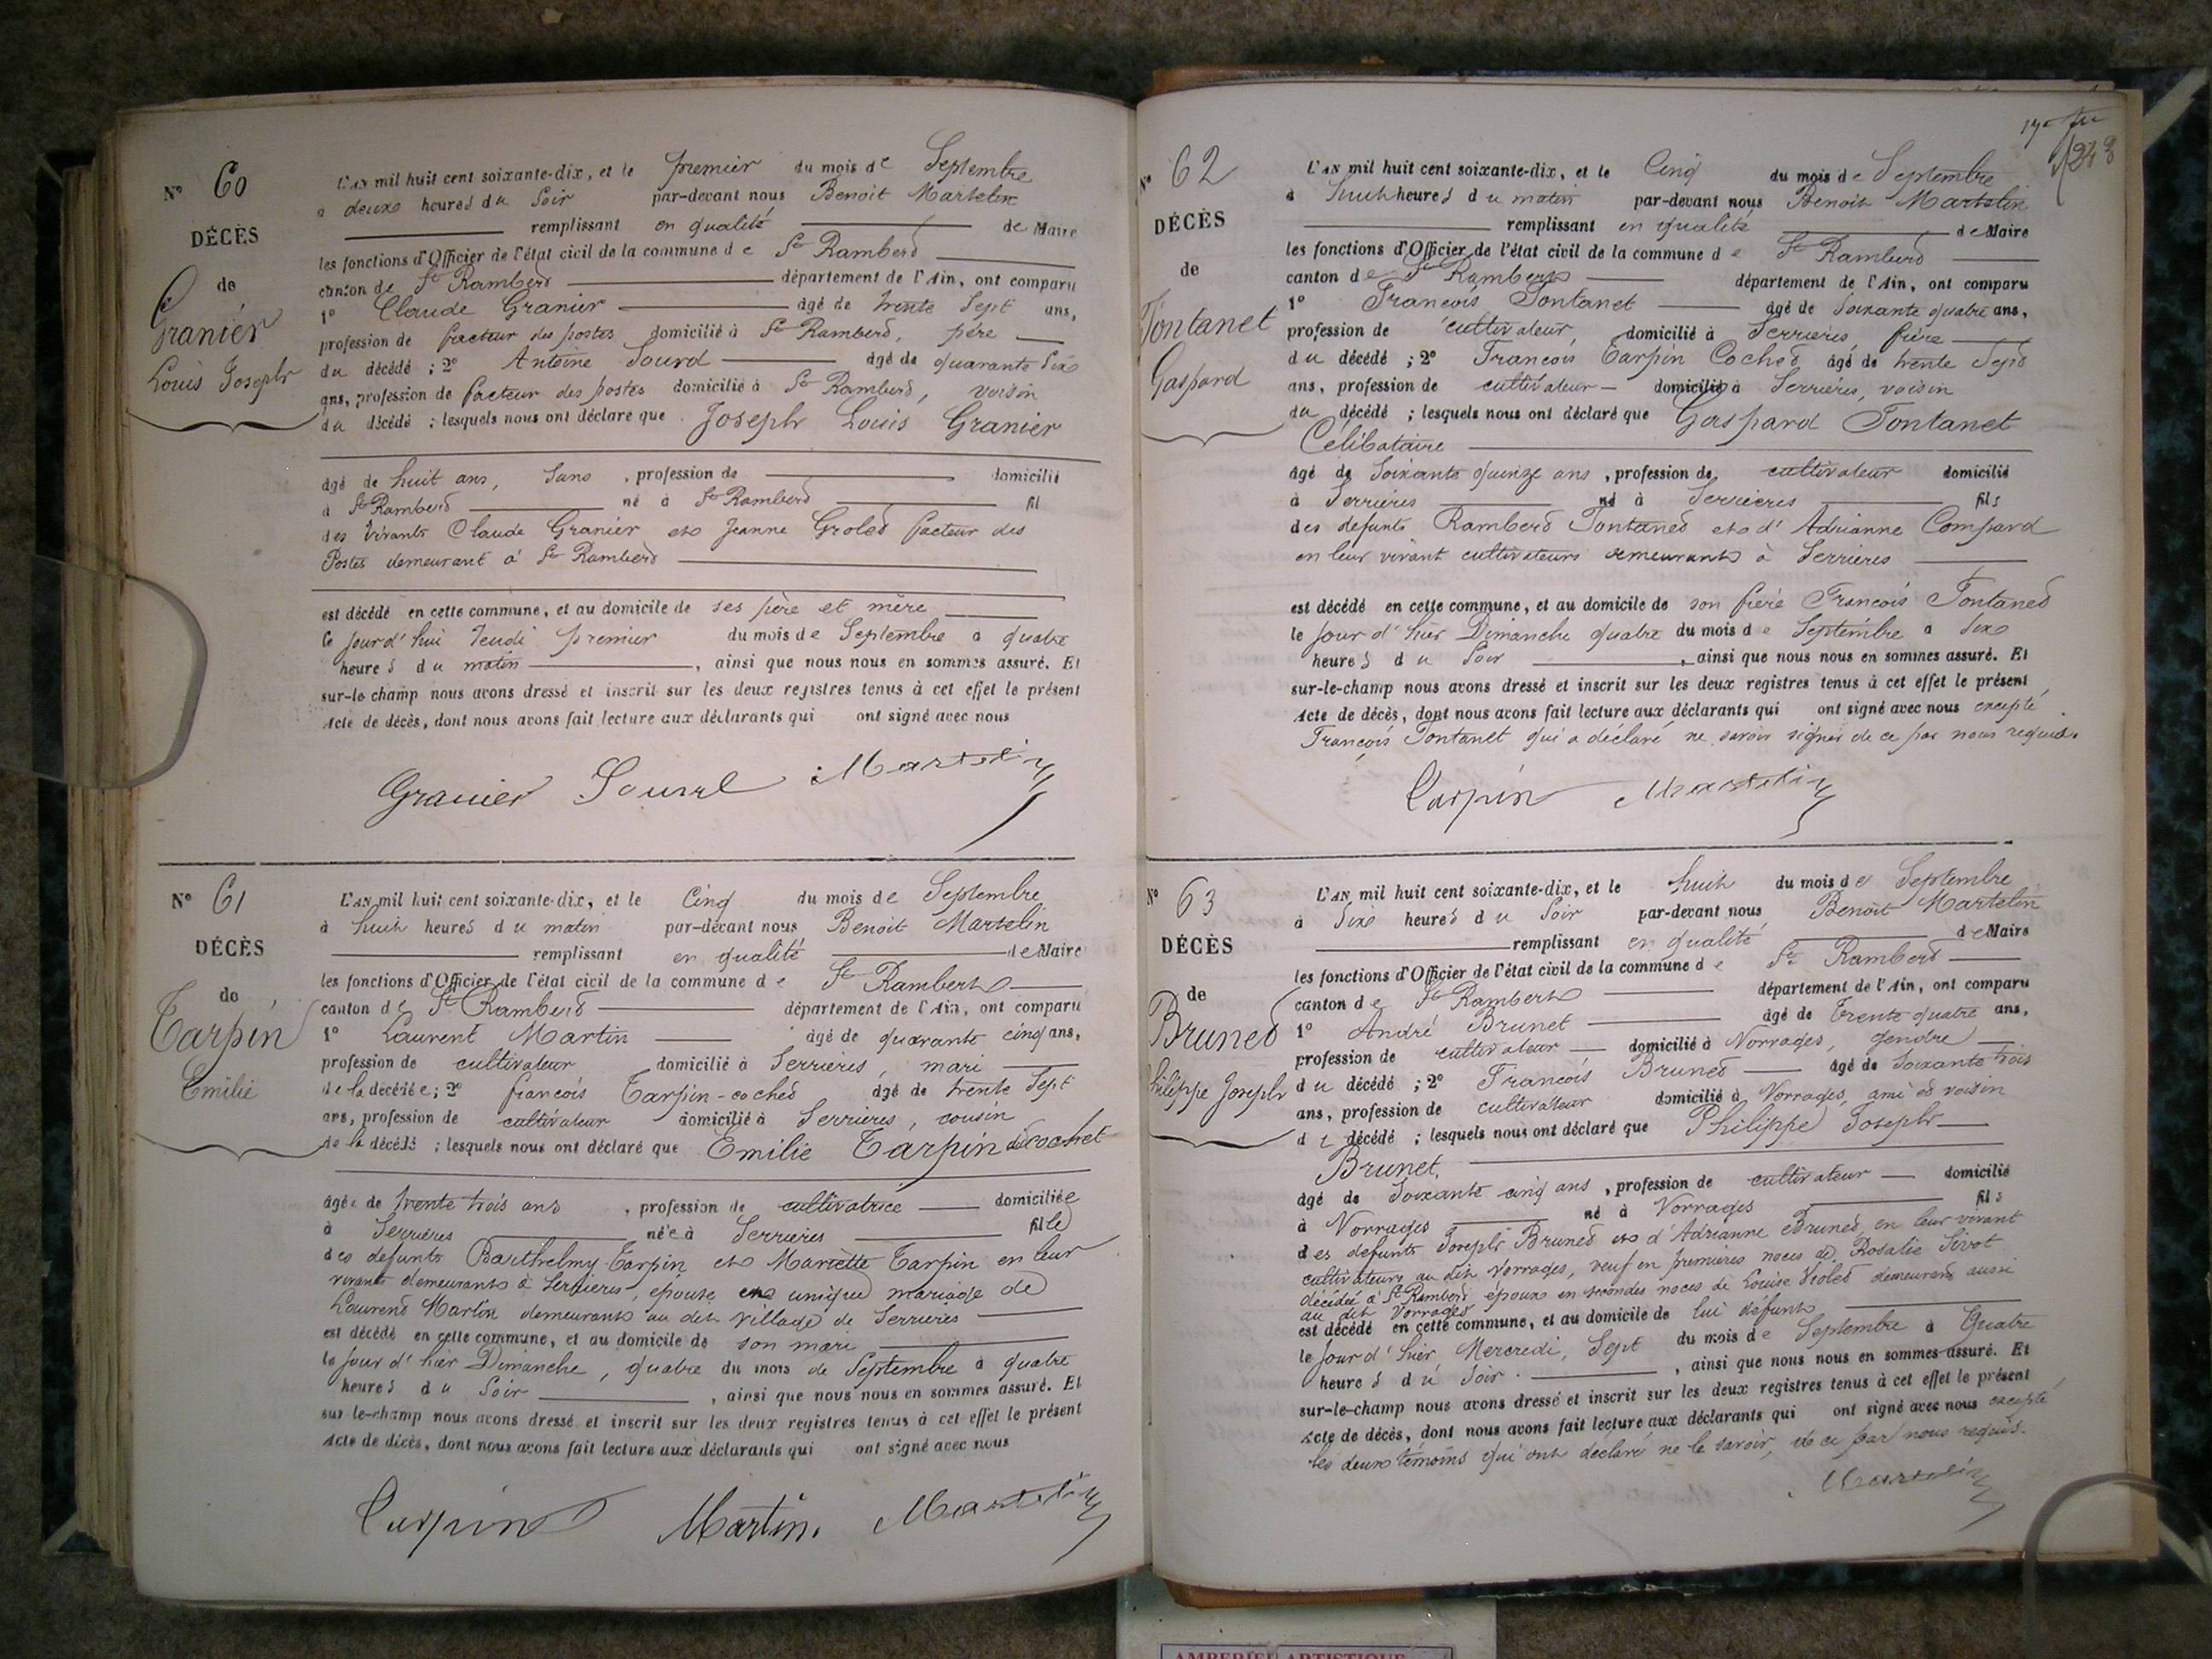 N° 60
DÉCÈS
de
Granier
Louis Joseph
L'AN mil huit cent soixante-dix, et le premier du mois de Septembre
à deux heures du Soir par-devant nous Benoit Martelin
remplissant en qualité de Maire
les fonctions d'Officier de l'état civil de la commune de St Rambert
canton de St Rambert département de l'Ain, ont comparu
1° Claude Granier âgé de trente Sept ans,
profession de facteur des postes domicilié à St Rambert, père
du décédé ; 2° Antoine Sourd âgé de quarante Six
ans, profession de facteur des postes domicilié à St Rambert, voisin
du décédé ; lesquels nous ont déclaré que Joseph Louis Granier
âgé de huit ans, Sans , profession de domicilié
à St Rambert né à St Rambert fil
des vivants Claude Granier et Jeanne Grolet facteur des
Postes demeurant à St Rambert
est décédé en cette commune, et au domicile de ses père et mère
le jour d'hui Jeudi premier du mois de Septembre à quatre
heures du matin , ainsi que nous nous en sommes assuré. Et
sur-le-champ nous avons dressé et inscrit sur les deux registres tenus à cet effet le présent
Acte de décès, dont nous avons fait lecture aux déclarants qui ont signé avec nous
Granier Sourd Martelin
N° 61
DÉCÈS
de
Tarpin
Emilie
L'AN mil huit cent soixante-dix, et le Cinq du mois de Septembre
à huit heures du matin par-devant nous Benoit Martelin
remplissant en qualité de Maire
les fonctions d'Officier de l'état civil de la commune de St Rambert
canton de St Rambert département de l'Ain, ont comparu
1° Laurent Martin âgé de quarante cinq ans,
profession de cultivateur domicilié à Serrières, mari
de la décédée ; 2° françois Tarpin-cochet âgé de trente Sept
ans, profession de cultivateur domicilié à Serrières, cousin
de la décédé ; lesquels nous ont déclaré que Emilie Tarpin dit cochet
âgée de trente trois ans , profession de cultivatrice domiciliée
à Serrières née à Serrières fille
des defunts Barthelmy Tarpin et Mariette Tarpin en leur
vivants demeurants à Serrieres, épouse en unique mariage de
Laurent Martin demeurants au dit village de Serrieres
est décédé en cette commune, et au domicile de son mari
le jour d'hier Dimanche, quatre du mois de Septembre à quatre
heures du Soir , ainsi que nous nous en sommes assuré. Et
sur le-champ nous avons dressé et inscrit sur les deux registres tenus à cet effet le présent
Acte de décès, dont nous avons fait lecture aux déclarants qui ont signé avec nous
Tarpin Martin. Martelin
248
N° 62
DÉCÈS
de
Fontanet
Gaspard
L'AN mil huit cent soixante-dix, et le Cinq du mois de Septembre
à huit heures du matin par-devant nous Benoit Martelin
remplissant en qualité de Maire
les fonctions d'Officier de l'état civil de la commune de St Rambert
canton de St Rambert département de l'Ain, ont comparu
1° Francois Fontanet âgé de Soixante quatre ans,
profession de cultivateur domicilié à Serrieres, frère
du décédé ; 2° Francois Tarpin Cochet âgé de trente Sept
ans, profession de cultivateur domicilié à Serrières, voisin
du décédé ; lesquels nous ont déclaré que Gaspard Fontanet
Célibataire
âgé de Soixante quinze ans , profession de cultivateur domicilié
à Serrieres né à Serrieres fils
des defunts Rambert Fontanet et d'Adrianne Compard
en leur vivant cultivateurs demeurants à Serrieres
est décédé en cette commune, et au domicile de son frère Francois Fontanet
le jour d'hier Dimanche quatre du mois de Septembre à Six
heures du Soir , ainsi que nous nous en sommes assuré. Et
sur-le-champ nous avons dressé et inscrit sur les deux registres tenus à cet effet le présent
Acte de décès, dont nous avons fait lecture aux déclarants qui ont signé avec nous excepté
François Fontanet qui a déclaré ne savoir signer de ce par nous requis.
Tarpin Martelin
N° 63
DÉCÈS
de
Brunet
Philippe Joseph
L'AN mil huit cent soixante-dix, et le huit du mois de Septembre
à Six heures du Soir par-devant nous Benoit Martelin
remplissant en qualité de Maire
les fonctions d'Officier de l'état civil de la commune de St Rambert
canton de St Rambert département de l'Ain, ont comparu
1° André Brunet âgé de Trente quatre ans,
profession de cultivateur domicilié à Vorrages, gendre
du décédé ; 2° Francois Brunet âgé de Soixante trois
ans, profession de cultivateur domicilié à Vorrages, ami et voisin
du décédé ; lesquels nous ont déclaré que Philippe Joseph
Brunet.
âgé de Soixante cinq ans , profession de cultivateur domicilié
à Vorrages né à Vorrages fils
des defunts Joseph Brunet et d'Adrianne Brunet, en leur vivant
cultivateurs au dit Vorrages, veuf en premières noces de Rosalie Sivot
décédée à St Rambert époux en secondes noces de Louise Violet demeurant aussi
au dit Vorrages
est décédé en cette commune, et au domicile de lui défunt
le jour d'hier, Mercredi, Sept du mois de Septembre à Quatre
heures du Soir , ainsi que nous nous en sommes assuré. Et
sur-le-champ nous avons dressé et inscrit sur les deux registres tenus à cet effet le présent
Acte de décès, dont nous avons fait lecture aux déclarants qui ont signé avec nous excepté
les deux témoins qui ont déclaré ne le savoir, de ce par nous requis.
Martelin
AMBERIEU ARTISTIQUE